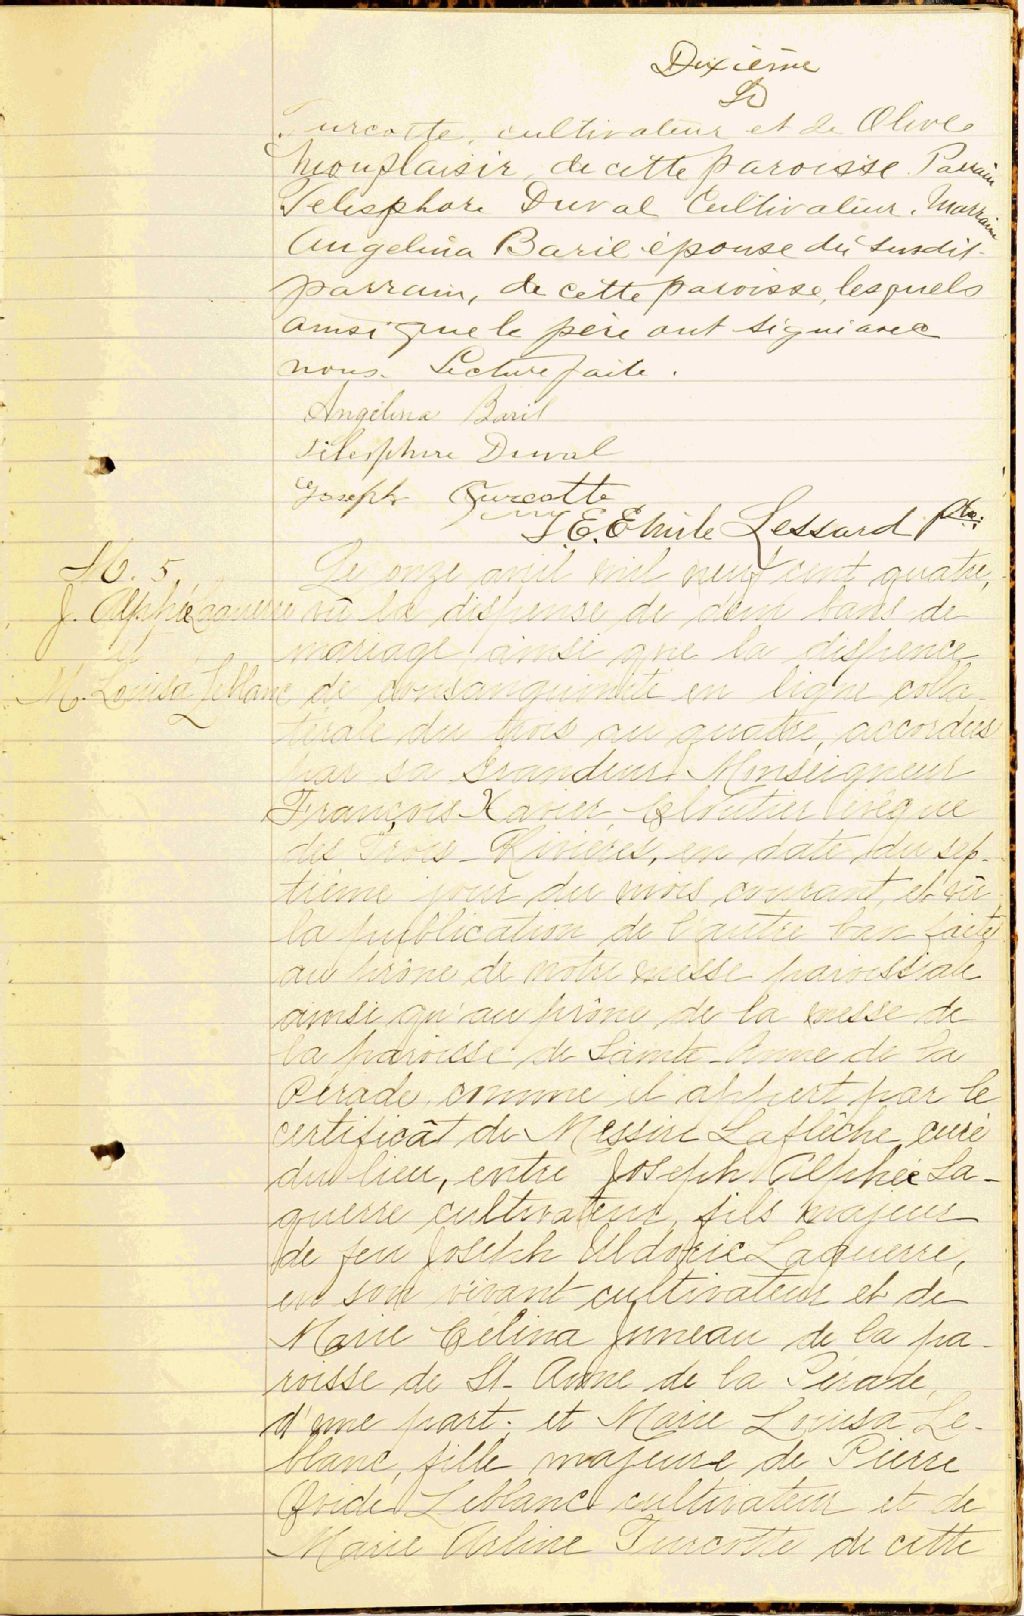 Dixième
Turcotte, cultivateur et de Olive
Monplaisir, de cette paroisse. Parrain
Télesphore Duval Cultivateur. Marraine
Angelina Baril épouse du susdit
parrain, de cette paroisse, lesquels
ainsi que le père ont signé avec
nous. Lecture faite.
Angélina Baril
Télesphore Duval
Joseph Turcotte
Lessard Ptre.
M. 5. Le onze avril mil neuf cent quatre,
J. Alphée Laguerre vû la dispense de deux bans de
et mariage ainsi que la dispence
M. Louisa Leblanc de consanguinité en ligne colla-
térale du trois au quatre, accordées
par sa Grandeur Monseigneur
François Xavier Cloutier évêque
des Trois-Rivières, en date du sep-
tième jour du mois courant, et vû
la publication de l'autre ban faite
au prône de notre messe paroissiale
ainsi qu'au prône de la messe de
la paroisse de Sainte-Anne de la
Pérade, comme il appert par le
certificât de Messire Laflèche, curé
du lieu, entre Joseph Alphée La-
guerre cultivateur, fils majeur
de feu Joseph Uldoric Laguerre,
en son vivant cultivateur et de
Marie Celina Juneau de la pa-
roisse de St-Anne de la Pérade,
d'une part; et Marie Louisa Le-
blanc, fille majeure de Pierre
Ovide Leblanc cultivateur et de
Marie Arline Turcotte de cette